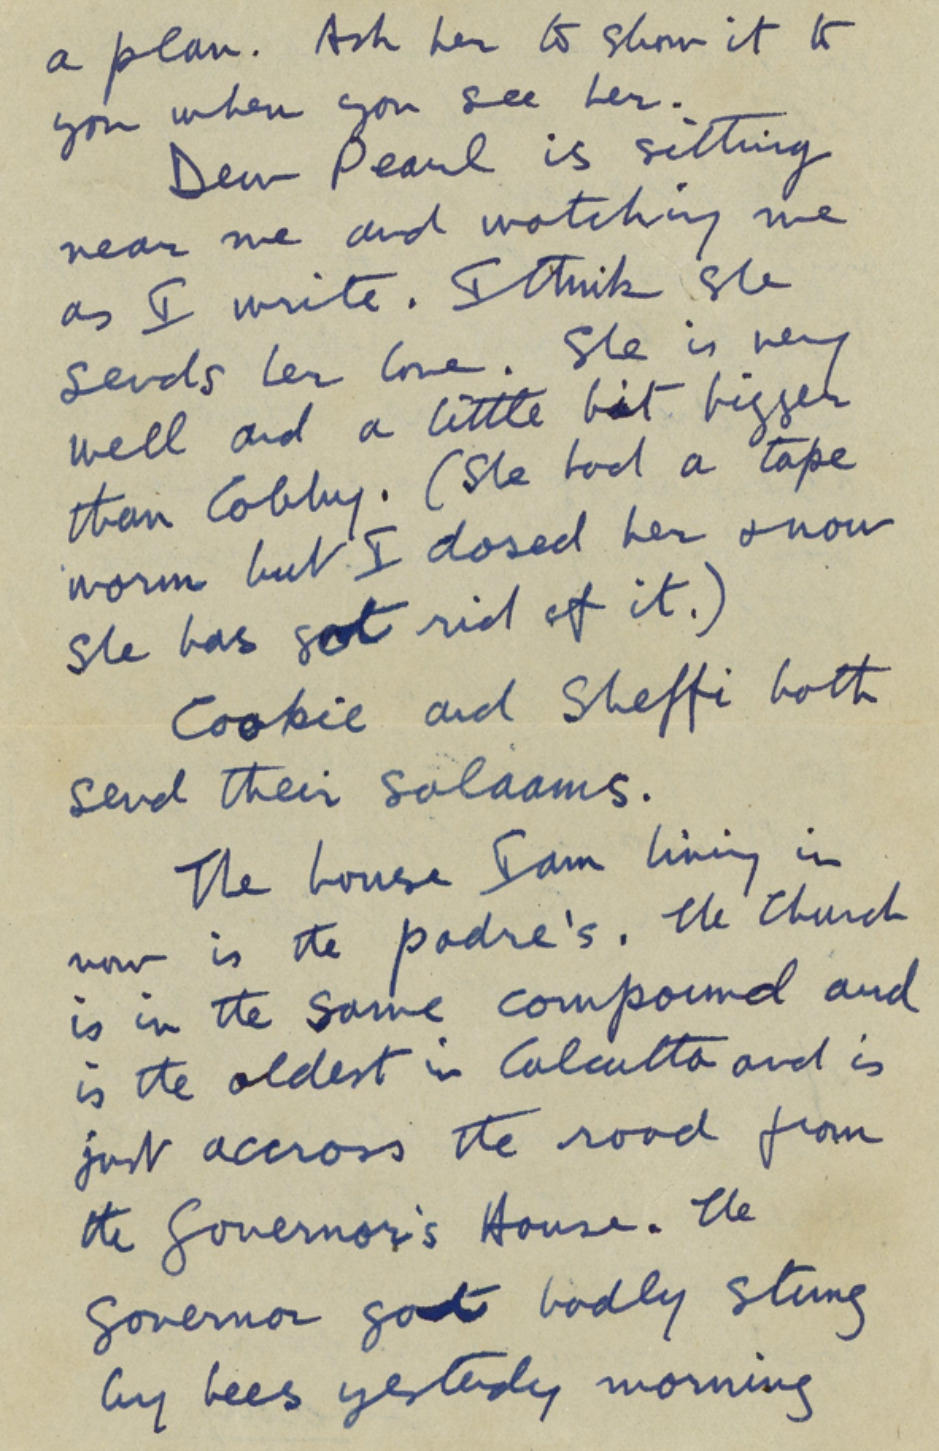 a plan. Ask her to show it to
you when you see her.
Dear Pearl is sitting
near me and watching me
as I write. I think she
sends her love. She is very
well and a little bit bigger
than Cobby. (She had a tape
worm but I dosed her & now
she has got rid of it.)
Cookie and Sheffi both
send their salaams.
The house I am living in
now is the padre's. The Church
is in the same compound and
is the oldest in Calcutta and is
just accross the road from
the Governor's House. The
Governor got badly stung
by bees yesterdy morning